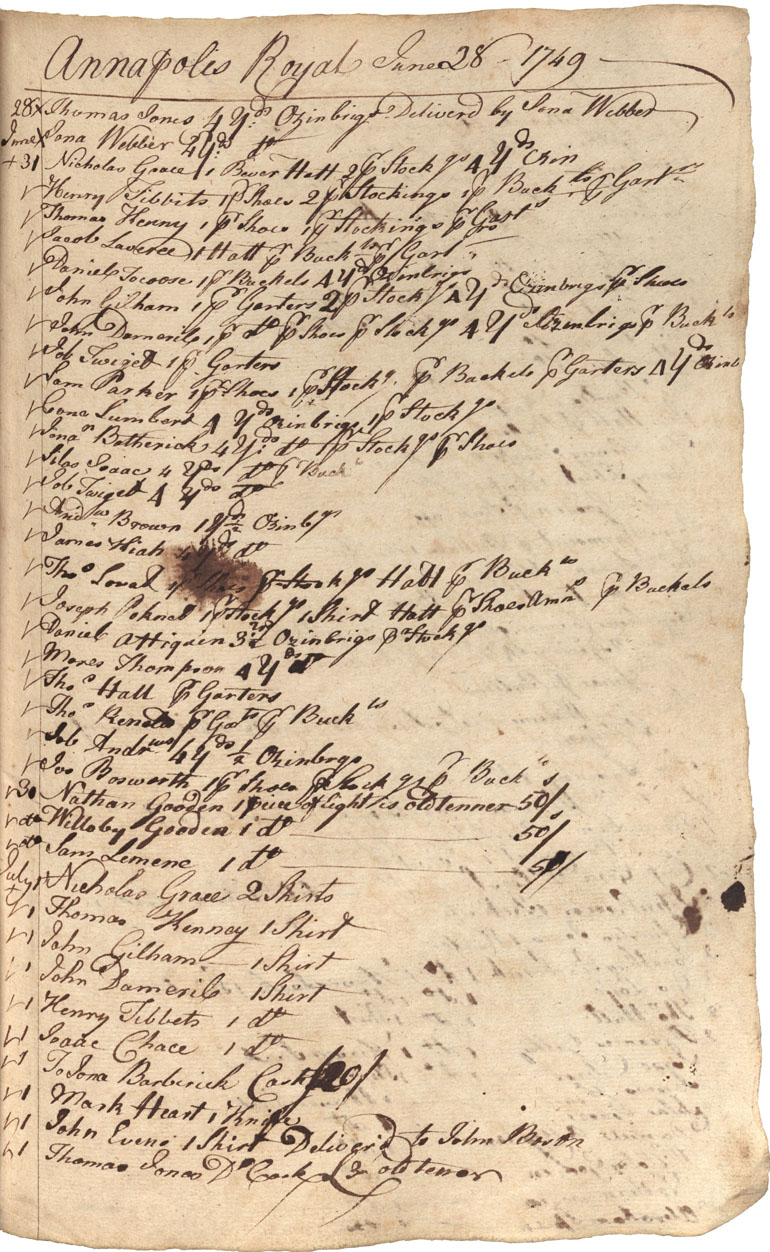 Annapolis Royal June 28 - 1749
28 x Thomas Jones 4 Yds Ozinbrigs Deliverd by Jona Webber
June x Jona Webber 2 Yds do
+ 31 Nicholas Grace 1 Bever Hatt 2 p Stockgs 4 Yds Ozin
Henry Tibbits 1 p Shoes 2 p Stockings 1 p Buck p Gart
Thomas Kenny 1 pr Shoes 1 p Stockings p Garts
Jacob 1 Hatt p Buck p Gart
Daniel 1 p Buckels 4 Yd Ozinbrigs
John Gilham 1 pr Garters 2 p Stockgs 4 Yds Ozinbrigs p Shoes
John Damerils 1 p do p Shoes p Stockgs 4 Yds Ozinbrigs p Buckls
Job Twiget 1 p Garters
Sam Parker 1 p Shoes 1 p Stockgs p Buckels p Garters 4 Yds Ozinb
Lumbert 4 Yds Ozinbrigs 1 p Stockgs
Jonan Botherick 4 Yds do 1 p Stockgs p Shoes
Silas Isaac 4 Yds do p Buck
Job Twiget 4 Yds do
Andw Brown 18 Yds 1/2 Ozinbgs
James Hiah 4 Yds do
Thos 1 p Shoes p Stockgs Hatt p Buckls
Joseph 1 p Stockgs 1 Shirt Hatt p Shoes p Buckels
Daniel Attiquin 3 1/2 Ozinbrigs pr Stockgs
Moses Thompson 4 Yds do
Thos Hall p Garters
Thos p Garts p Buckls
Job Andrws 4 Yds 1/2 Ozinbrgs
Bosworth 1 p Shoes p Stockgs 1 p Buckls
30 Nathan Gooden 1 piece of Eight is old tenner 50/s
do Willoby Gooden 1 do 50/s
do Sam Lemene 1 do 50/
July 1 Nicholas Grace 2 Shirts
1 Thomas Kenney 1 Shirt
1 John Gilham 1 Shirt
1 John Damerils 1 Shirt
1 Henry Tibbets 1 do
1 Isaac Chace 1 do
1 To Jona Barbirick Cash 20/
1 Mark Heart 1 Knife
1 John Evens 1 Shirt Deliver'd to John Boson
1 Thomas Jones Do Cash old tenor